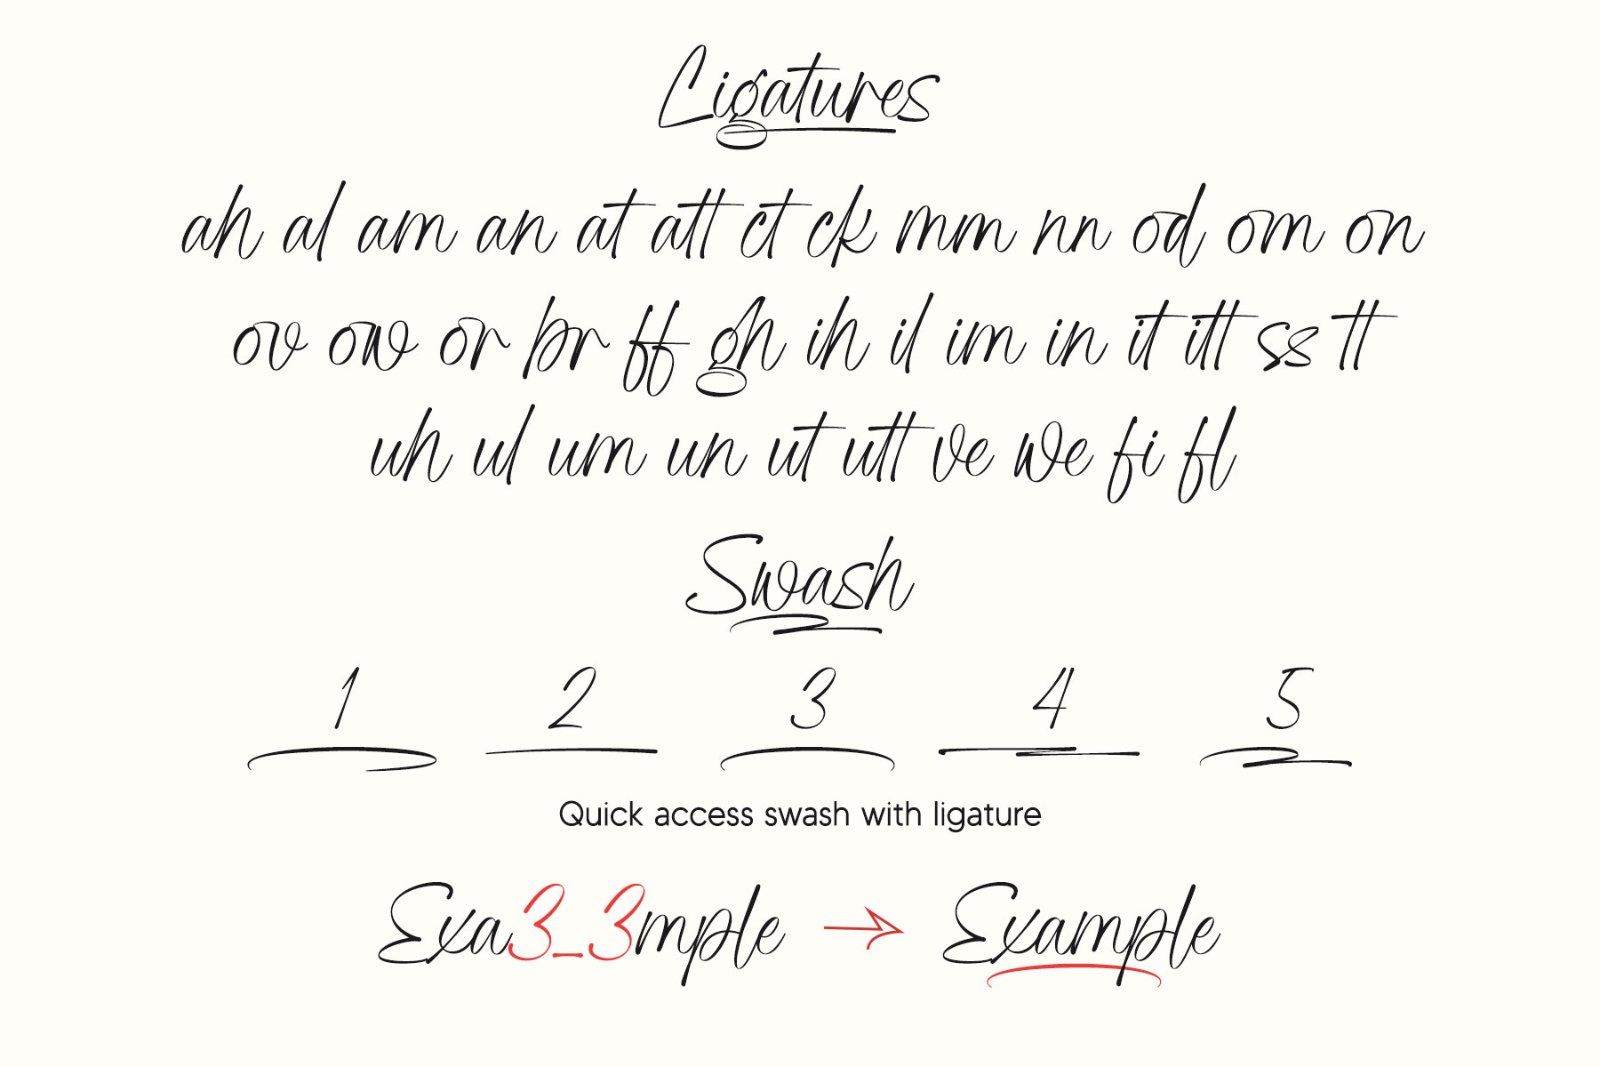 Ligatures
ah al am an at att ct ck mm nn od om on
ov ow or br ff gh ih il im in it itt ss tt
uh ul um un ut utt ve we fi fl
Swash
1 2 3 4 5
Quick access swash with ligature
Exa3_3mple → Example